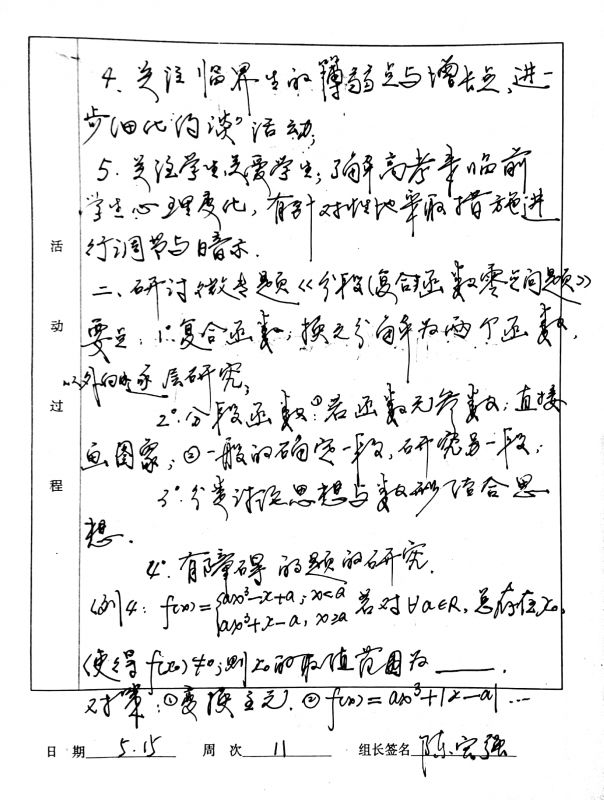 4、关注临界生的薄弱点与增长点,进一
步细化"约谈"活动;
5、关注学生关爱学生;了解高考来临前
学生心理变化,有针对性地采取措施进
行调节与暗示.
二、研讨微专题《分段(复合)函数零点问题》
要点:1°.复合函数;换元分解为两个函数,
从外向内逐层研究;
2°.分段函数:①若函数无参数;直接
画图象;②一般的确定一段,研究另一段;
3°.分类讨论思想与数形结合思
想.
4°.有障碍的题的研究.
例4:f(x)={ax³-x+a,x<a
ax³+x-a,x≥a 若对∀a∈R,总存在x₀,
使得f(x₀)≠0;则x₀的取值范围为____.
对策:①变换主元.②f(x)=ax³+|x-a|…
活动过程
日期 5.15 周次 11 组长签名 陈宏强